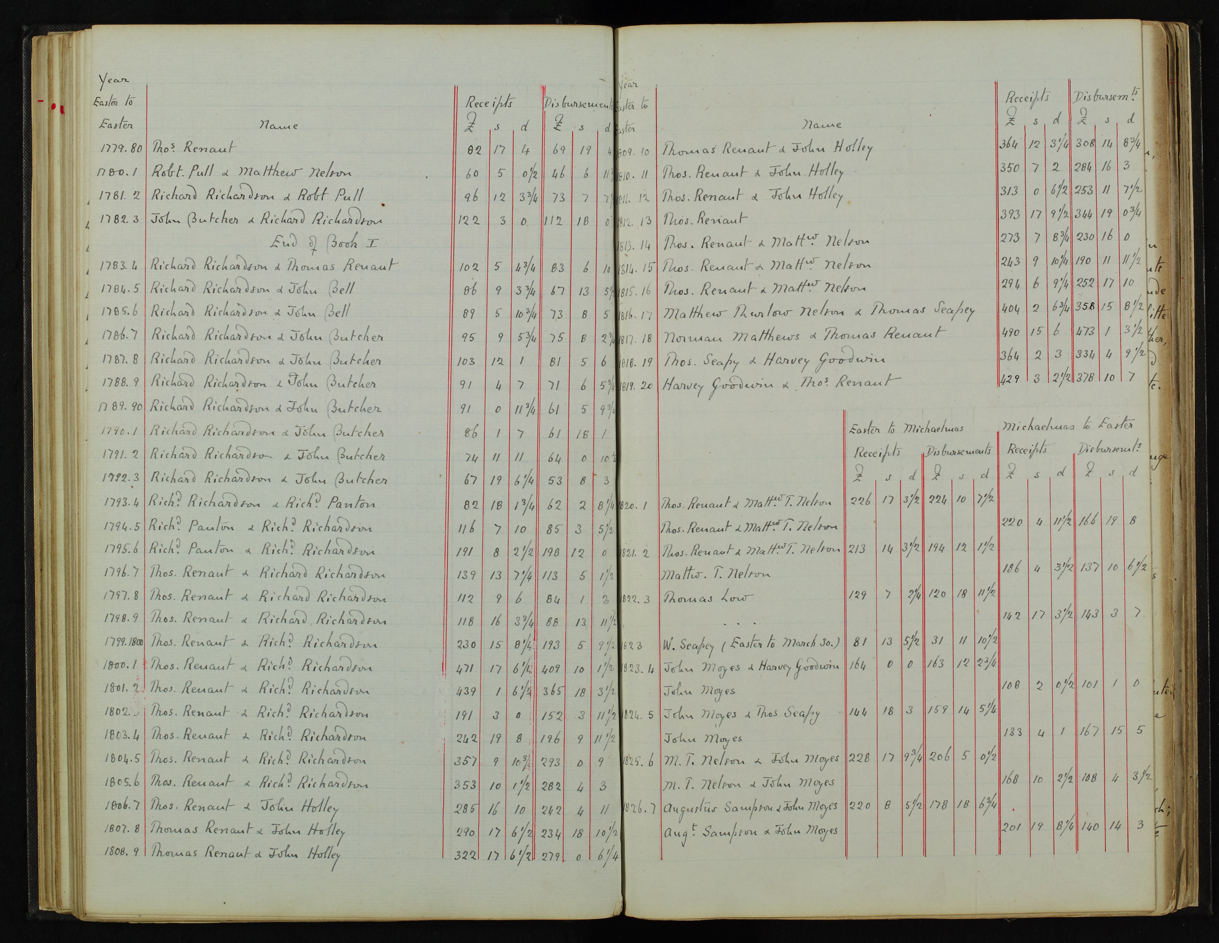 Year
Easter to Receipts Disbursement
Easter Name £ s d £ s
1779.80 Thos. Renaut 82 17 4 69 19 4
1780.1 Robt. Pull & Matthew Nelson 60 5 0½ 46 6 11
1781.2 Richard Richardson & Robt Pull 96 12 3¾ 73 7 7
1782.3 John Butcher & Richard Richardson 122 3 0 112 18 0
End of Book I
1783.4 Richard Richardson & Thomas Renaut 102 5 4¾ 83 6 10
1784.5 Richard Richardson & John Bell 86 9 3¾ 67 13 5½
1785.6 Richard Richardson & John Bell 89 5 10¾ 73 8 5
1786.7 Richard Richardson & John Butcher 95 9 5¾ 75 8 2¾
1787.8 Richard Richardson & John Butcher 103 12 1 81 5 6
1788.9 Richard Richardson & John Butcher 91 4 7 71 6 5¾
1789.90 Richard Richardson & John Butcher 91 0 11¾ 61 5 9¾
1790.1 Richard Richardson & John Butcher 86 1 7 61 18 1
1791.2 Richard Richardson & John Butcher 74 11 11 64 0 10½
1792.3 Richard Richardson & John Butcher 67 19 6¼ 53 8 3
1793.4 Richd. Richardson & Richd. Panton 82 18 1¾ 62 2 8¼
1794.5 Richd. Panton & Richd. Richardson 116 7 10 85 3 5½
1795.6 Richd. Panton & Richd. Richardson 191 8 2½ 198 12 0
1796.7 Thos. Renaut & Richard Richardson 139 13 7¼ 113 5 1½
1797.8 Thos. Renaut & Richard Richardson 112 9 6 84 1 3
1798.9 Thos. Renaut & Richard Richardson 118 16 3¾ 88 13 11½
1799.1800 Thos. Renaut & Richd. Richardson 230 15 8¼ 193 5 9½
1800.1 Thos. Renaut & Richd. Richardson 471 17 6½ 409 10 1½
1801.2 Thos. Renaut & Richd. Richardson 439 1 6¼ 365 18 3½
1802. Thos. Renaut & Richd. Richardson 191 3 0 152 3 11½
1803.4 Thos. Renaut & Richd. Richardson 242 19 8 196 9 11½
1804.5 Thos. Renaut & Richd. Richardson 357 9 10¾ 293 0 9
1805.6 Thos. Renaut & Richd. Richardson 353 10 1½ 282 4 3
1806.7 Thos. Renaut & John Holley 285 16 10 242 4 11
1807.8 Thomas Renaut & John Holley 290 17 6½ 234 18 10½
1808.9 Thomas Renaut & John Holley 322 17 6½ 279 0 6¼
Year
Easter to Receipts Disbursemts.
Easter Name £ s d £ s d
1809.10 Thomas Renaut & John Holley 364 12 3¼ 308 14 8¾
1810.11 Thos. Renaut & John Holley 350 7 2 284 16 3
1811.12 Thos. Renaut & John Holley 313 0 6½ 253 11 7½
1812.13 Thos. Renaut 393 17 9½ 344 19 0¾
1813.14 Thos. Renaut & Mattw. Nelson 273 7 8¾ 230 16 0
1814.15 Thos. Renaut & Mattw. Nelson 243 9 10¼ 190 11 11½
1815.16 Thos. Renaut & Mattw. Nelson 294 6 9¼ 252 17 10
1816.17 Matthew Thurlow Nelson & Thomas Seapey 404 2 6¾ 358 15 8½
1817.18 Norman Matthews & Thomas Renaut 490 15 6 473 1 3½
1818.19 Thos. Seapy & Harvey Goodwin 364 2 3 334 4 9½
1819.20 Harvey Goodwin & Thos. Renaut 429 3 2½ 378 10 7
Easter to Michaelmas Michaelmas to Easter
Receipts Disbursements Receipts Disbursemts
£ s d £ s d £ s d £ s d
1820.1 Thos. Renaut & Mattw. T. Nelson 226 17 3½ 224 10 7½
Thos. Renaut & Mattw. T. Nelson 220 4 11½ 166 19 8
1821.2 Thos. Renaut & Mattw. T. Nelson 213 14 3½ 194 12 1½
Mattw. T. Nelson 186 4 3½ 137 10 6½
1822.3 Thomas Low 129 7 2¼ 120 18 11½
. . . 142 17 3½ 143 3 7
1823 W. Seapey (Easter to March 30.) 81 13 5½ 31 11 10½
1823.4 John Moyes & Harvey Goodwin 164 0 0 163 12 2¾
John Moyes 108 2 0½ 101 1 0
1824.5 John Moyes & Thos Seapy 144 18 3 159 14 5¼
John Moyes 133 4 1 167 15 5
1825.6 M. T. Nelson & John Moyes 228 17 9¾ 206 5 0½
M. T. Nelson & John Moyes 168 10 2½ 188 4 3½
1826.7 Augustus Sampson & John Moyes 220 8 5½ 178 18 6¾
Augt. Sampson & John Moyes 201 19 8¼ 140 14 3